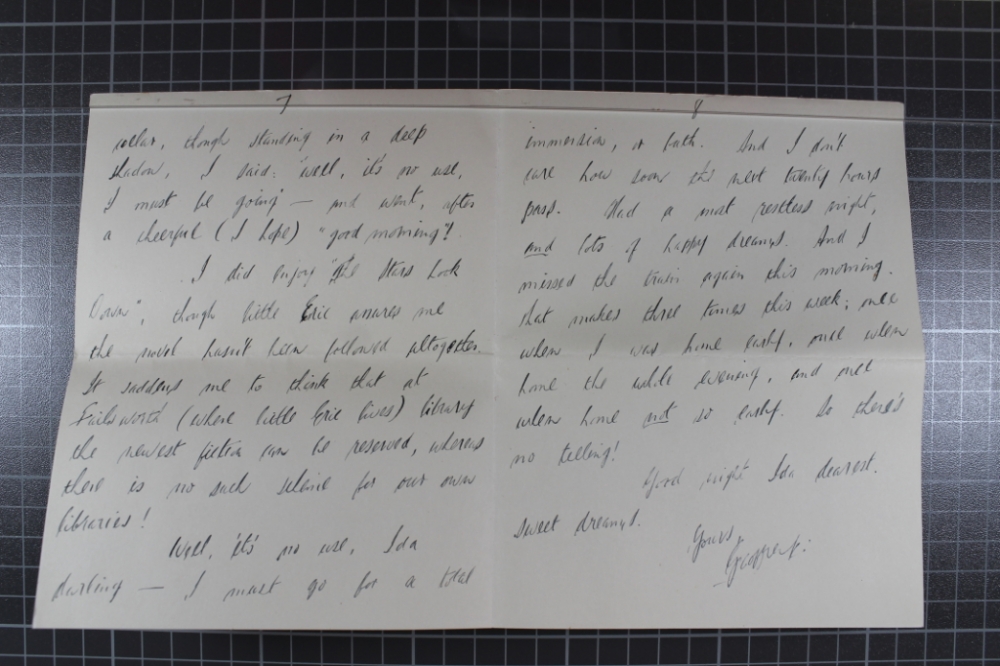 7
collar, though standing in a deep
shadow, I said: "well, it's no use,
I must be going" — and went, after
a cheerful (I hope) "good morning"!
I did enjoy "The Stars Look
Down", though little Eric assures me
the novel hasn't been followed altogether.
It saddens me to think that at
Failsworth (where little Eric lives) library
the newest fiction can be reserved, whereas
there is no such scheme for our own
libraries!
Well, it's no use, Ida
darling — I must go for a total
8
immersion, or bath. And I don't
care how soon the next twenty hours
pass. Had a most restless night,
and lots of happy dreams. And I
missed the train again this morning.
That makes three times this week; once
when I was home early, once when
home the whole evening, and once
when home not so early. So there's
no telling!
Good night Ida dearest.
Sweet dreams.
Yours,
Geoffrey.